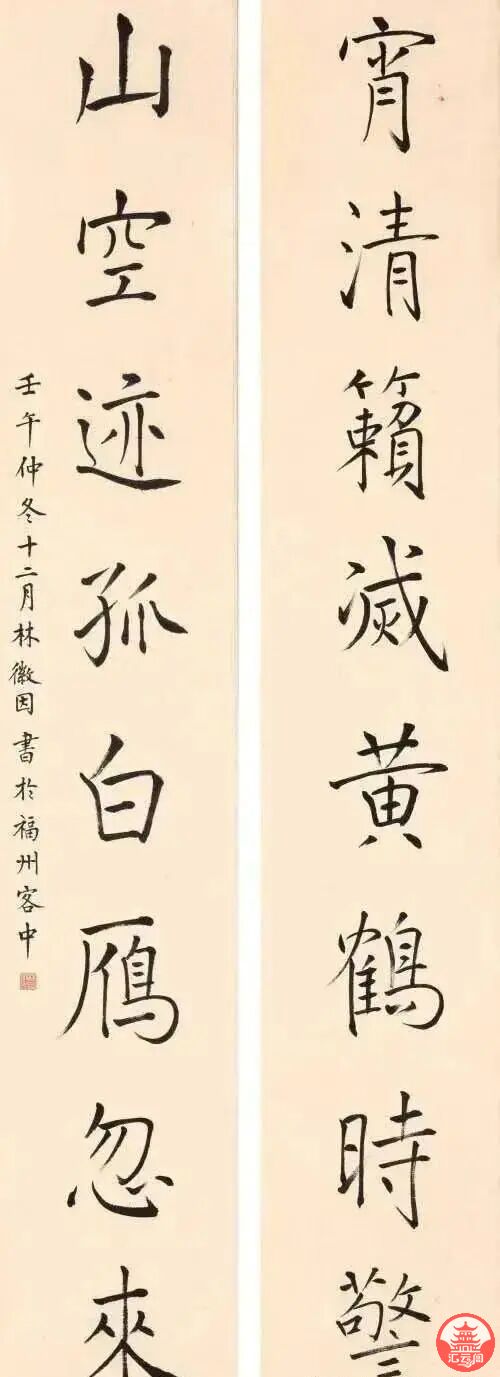 宵清籟滅黄鶴時警
山空迹孤白鴈忽來
壬午仲冬十二月林徽因書於福州客中
汇云阁